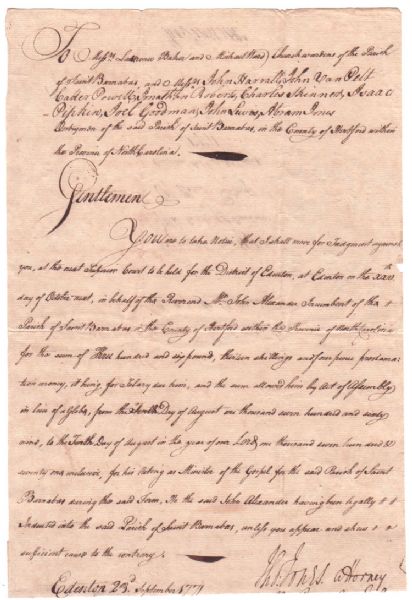 To Messrs Lawrence Baker and Michael Ward, Churchwardens of the Parish
of Saint Barnabas, and Messrs John Harrall, John Van Pelt
Cader Powell, Jonathan Roberts, Charles Skinner, Isaac
Pipkin, Joel Goodman, John Lewis, Abram Jones
Vestrymen of the said Parish of Saint Barnabas, in the County of Hertford within
the Province of North Carolina.
Gentlemen
You are to take Notice, that I shall move for Judgment against
you, at the next Superior Court to be held for the District of Edenton, at Edenton on the
day of October next, in behalf of the Reverend Mr. John Alexander Incumbent of the
Parish of Saint Barnabas & the County of Hertford within the Province of North Carolina
for the sum of Three hundred and six pound, thirteen shillings and four pence proclama-
tion money, it being for Salary due him, and the sum allowed him by Act of Assembly
in lieu of a Glebe, from the Tenth Day of August one thousand seven hundred and sixty
nine, to the Tenth Day of August in the year of our Lord, one thousand seven hundred
seventy one inclusive, for his acting as Minister of the Gospel for the said Parish of Saint
Barnabas during the said Term, He the said John Alexander having been legally
Inducted into the said Parish of Saint Barnabas, unless you appear and shew
sufficient cause to the contrary.
Edenton 23d September 1771
Thos. Jones attorney